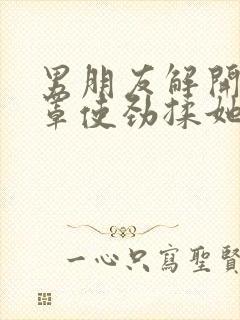 男朋友解開
罩使劲揉她
一心只寫聖賢